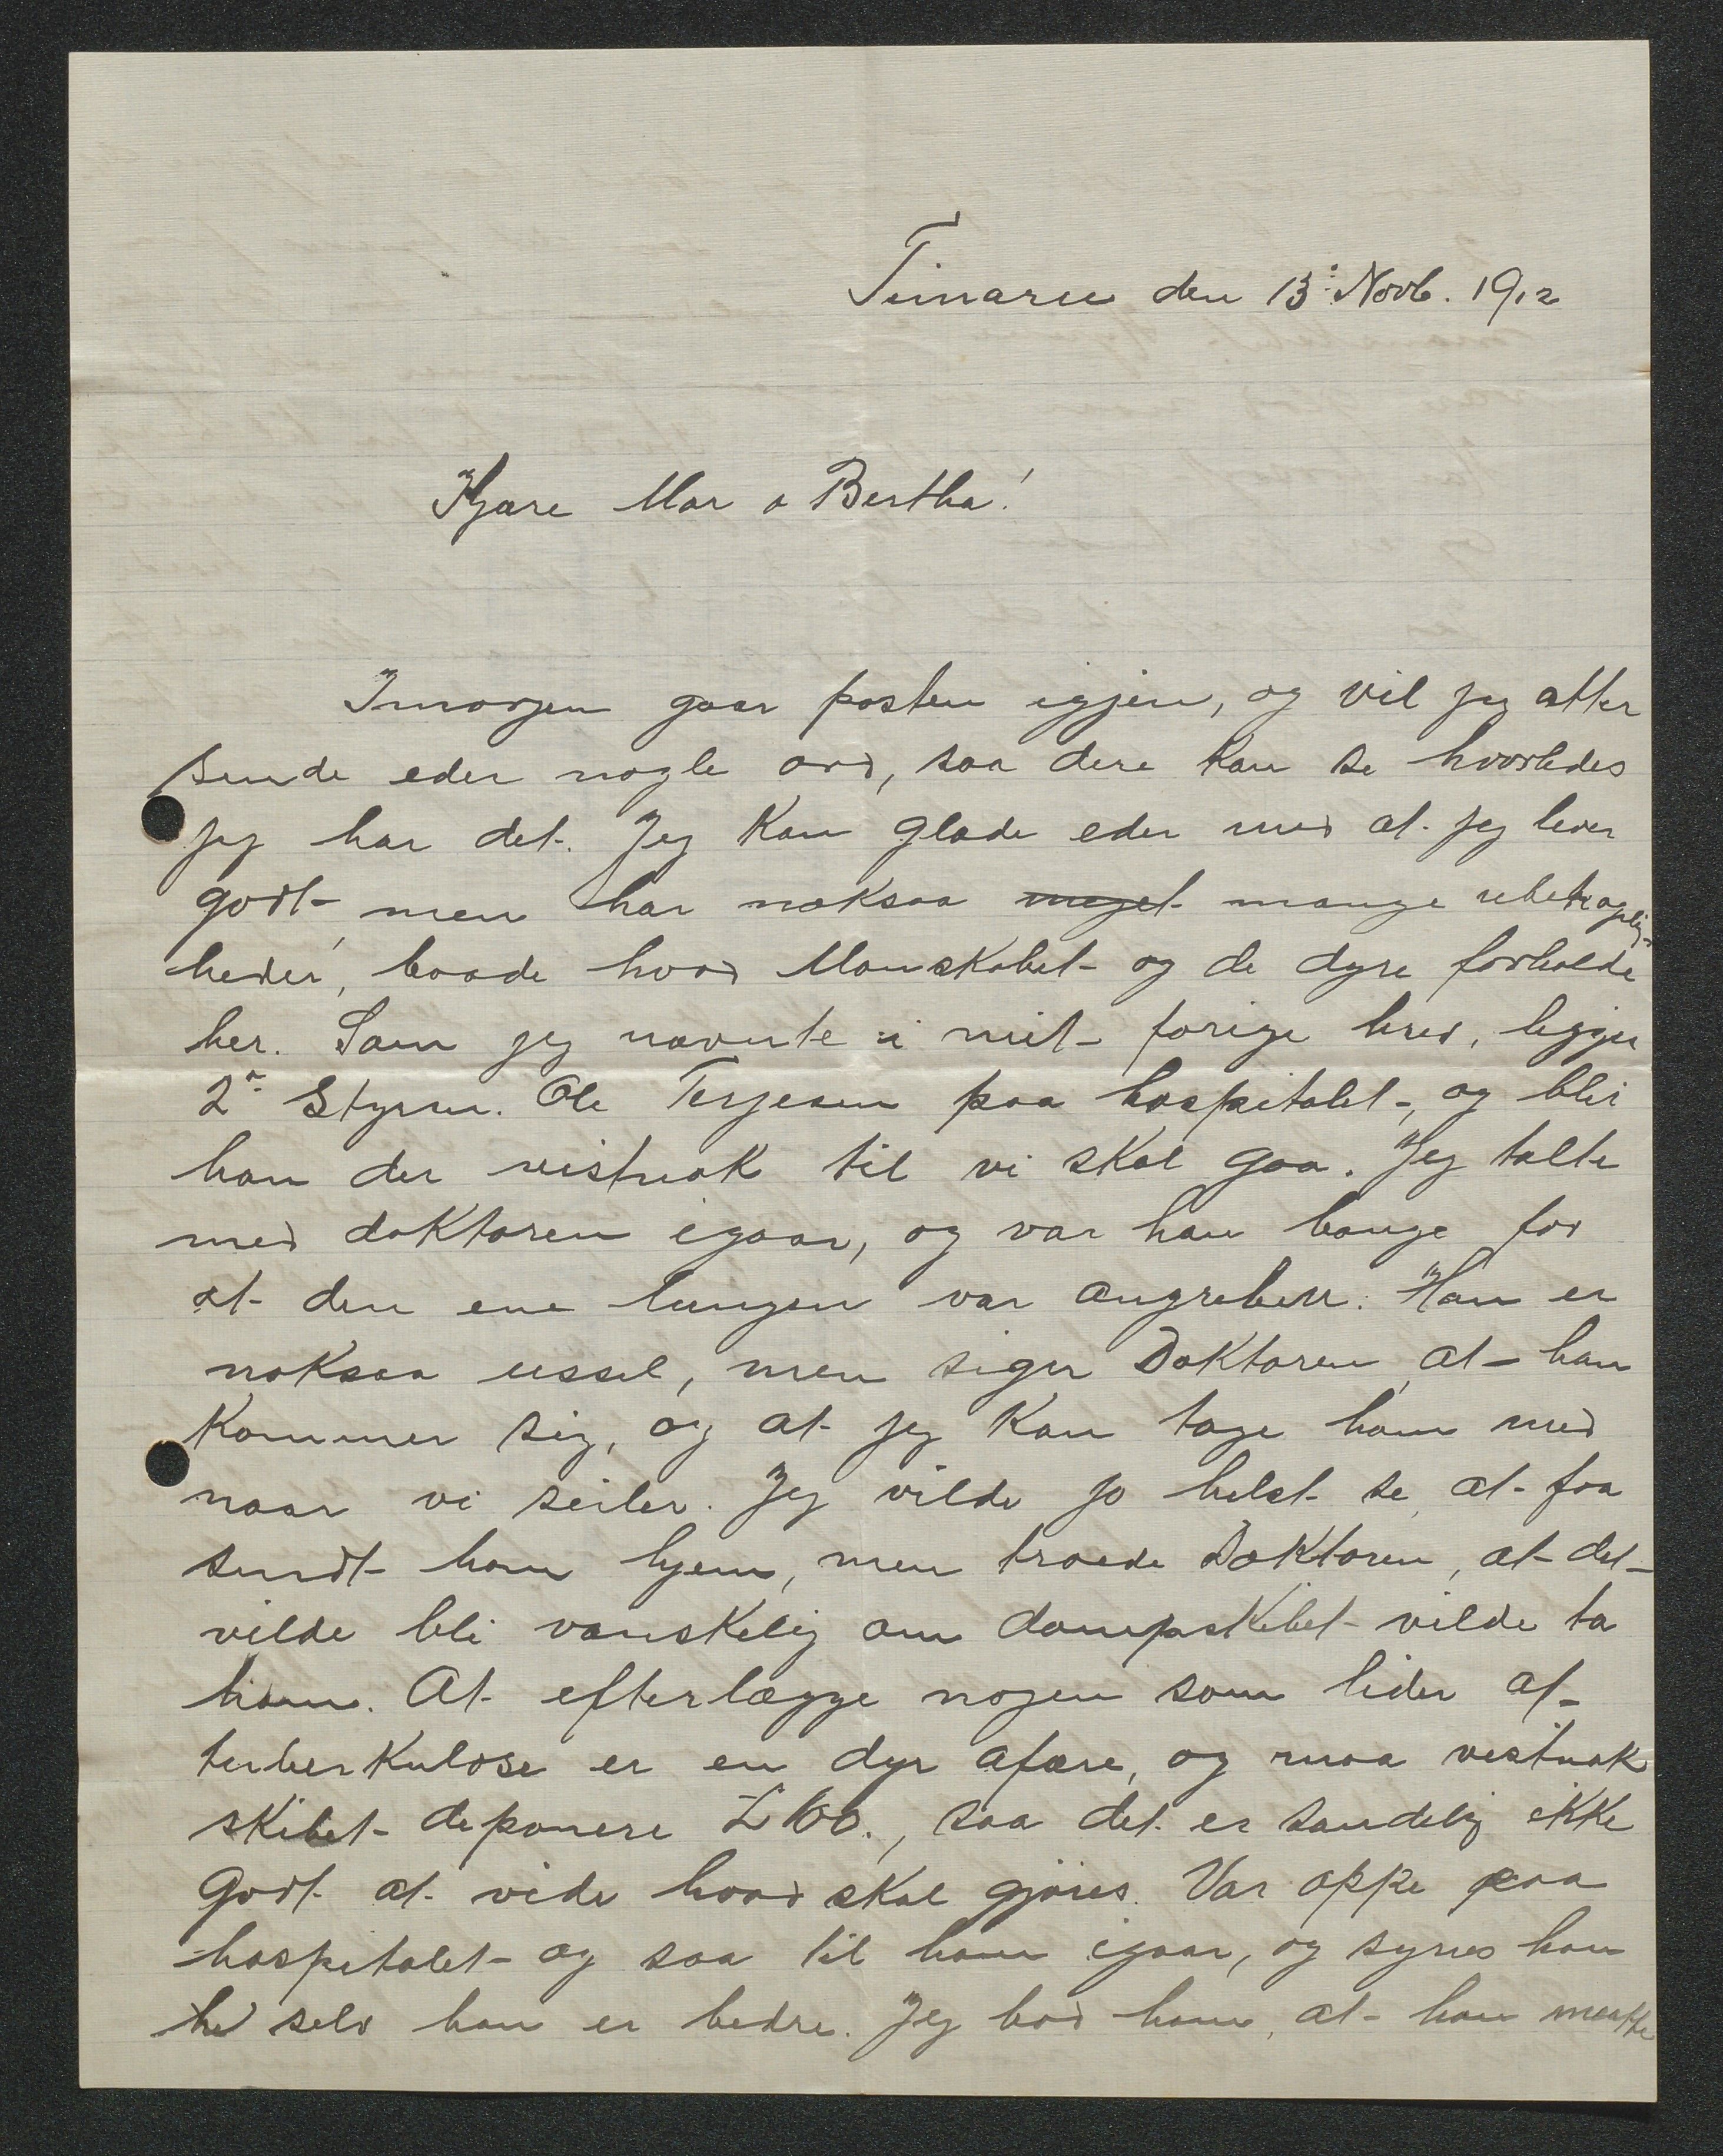 Timaru den 13: Novb. 1912
Kjære Mor o Bertha!
Imorgen gaar posten igjen, og vil jeg atter
sende eder nogle ord, saa dere kan se hvorledes
jeg har det. Jeg kan glæde eder med at jeg lever
godt men har noksaa meget mange ubehagelig-
heder, baade hvad Manskabet og de dyre forholde
her. Som jeg nævnte i mit forige brev, ligger
2den Styrm. Ole Terjesen paa hospitalet, og blir
han der vistnok til vi skal gaa. Jeg talte
med doktoren igaar, og var han bange for
at den ene lungen var angreben. Han er
noksaa ussel, men siger Doktoren, at han
kommer sig, og at jeg kan tage ham med
naar vi seiler. Jeg vilde jo helst se, at faa
sendt ham hjem, men troede Doktoren, at det
vilde bli vanskelig om dampskibet vilde ta
ham. At efterlægge nogen som lider af
tuberkulose er en dyr afære, og maa vistnok
skibet deponere £100., saa det er sandelig ikke
godt at vide hvad skal gjøres. Var oppe paa
hospitalet og saa til ham igaar, og synes han
selv han er bedre. Jeg bad ham, at han maatte